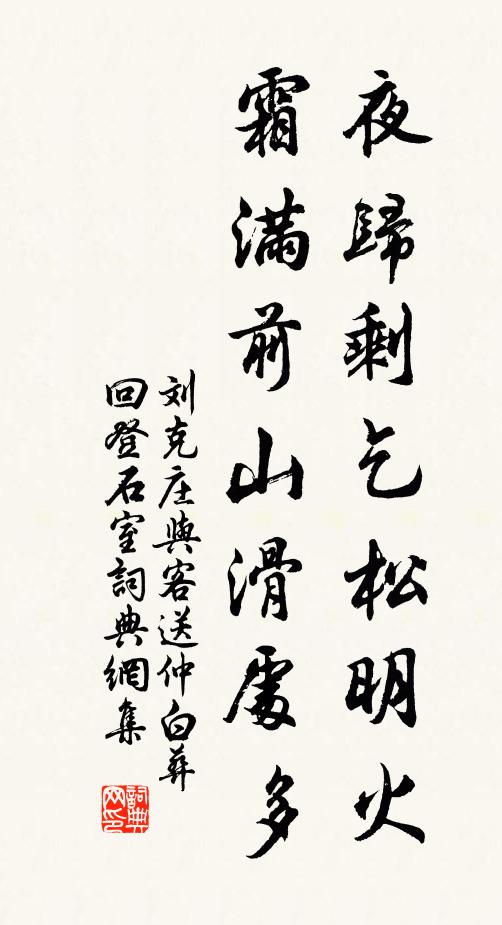 夜歸剩乞松明火
霜满前山滑處多
刘克庄與客送仲白葬
回登石室詞典網集
詞典
网印